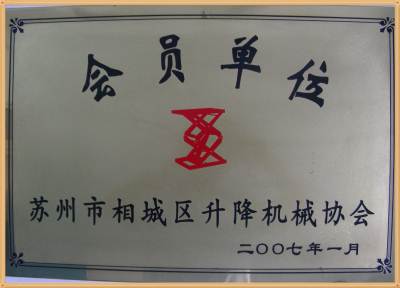 会员单位
苏州市相城区升降机械协会
二〇〇七年一月